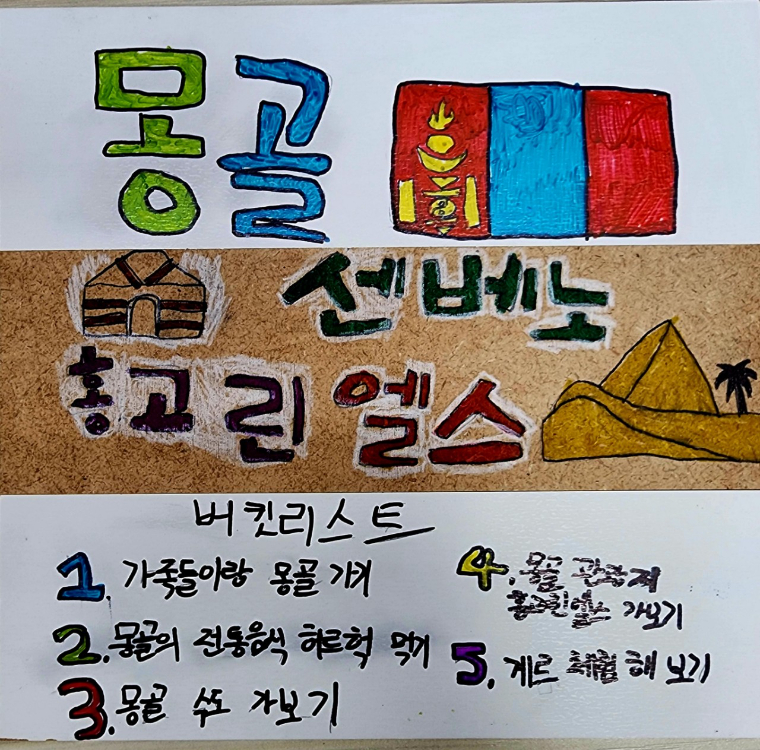 몽골
센베노
홍고린 엘스
버킷리스트
1. 가족들이랑 몽골 가기
2. 몽골의 전통음식 허르헉 먹기
3. 몽골 수도 가보기
4. 몽골 관광지
홍고린엘스 가보기
5. 게르 체험 해 보기